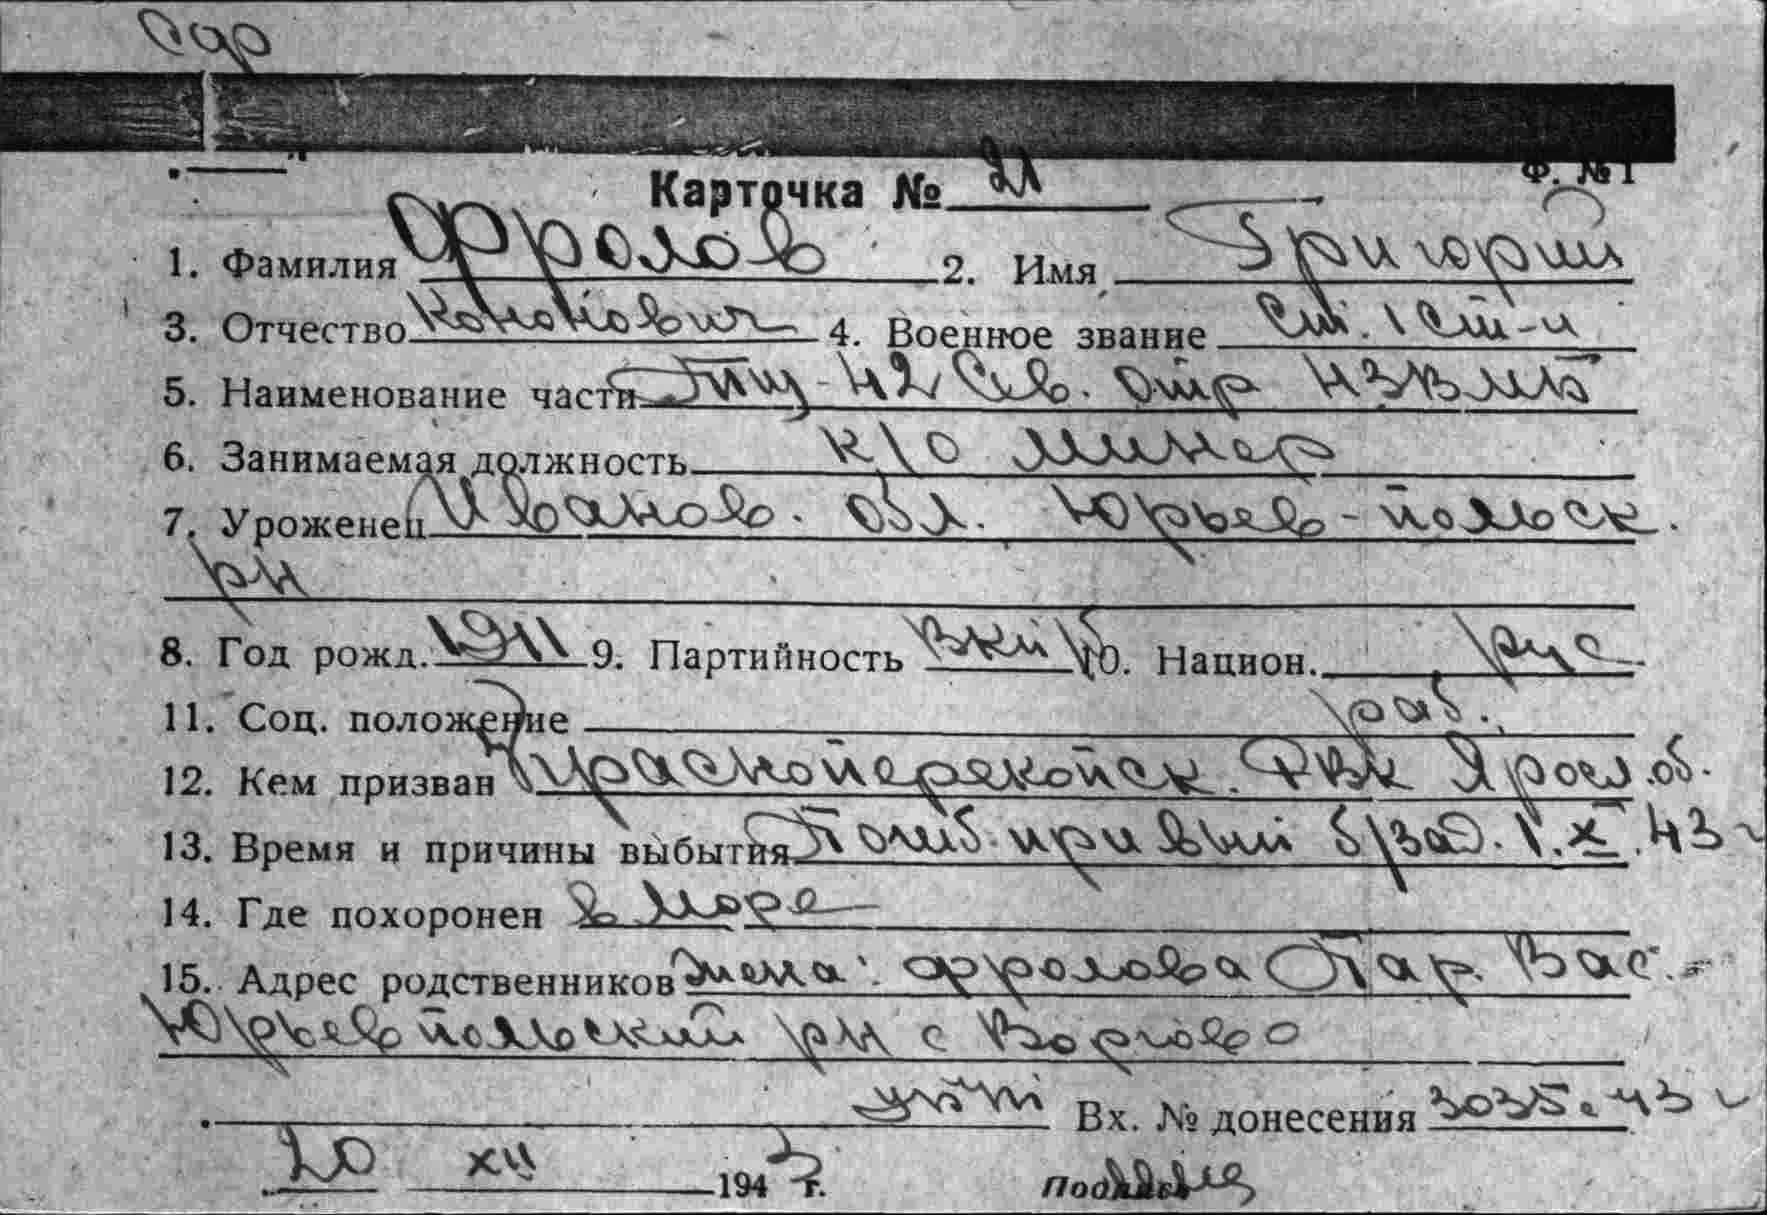 Карточка № 21
Ф. № 1
1. Фамилия Фролов 2. Имя Григорий
3. Отчество Кононович 4. Военное звание Ст. 1 ст-и
5. Наименование части Тщ-42 Сев. отр НЗВМБ
6. Занимаемая должность к/о минер
7. Уроженец Иванов. обл. Юрьев-польск.
рн
8. Год рожд. 1911 9. Партийность ВКПб 10. Национ. рус
11. Соц. положение раб.
12. Кем призван Красноперекопск. РВК Яросл. об.
13. Время и причины выбытия Погиб при вып б/зад. 1.X.43 г
14. Где похоронен в море
15. Адрес родственников жена: Фролова Вас.
Юрьевпольский рн с
Вх. № донесения 3035. 43 г
20 XII 1943 г. Подпись